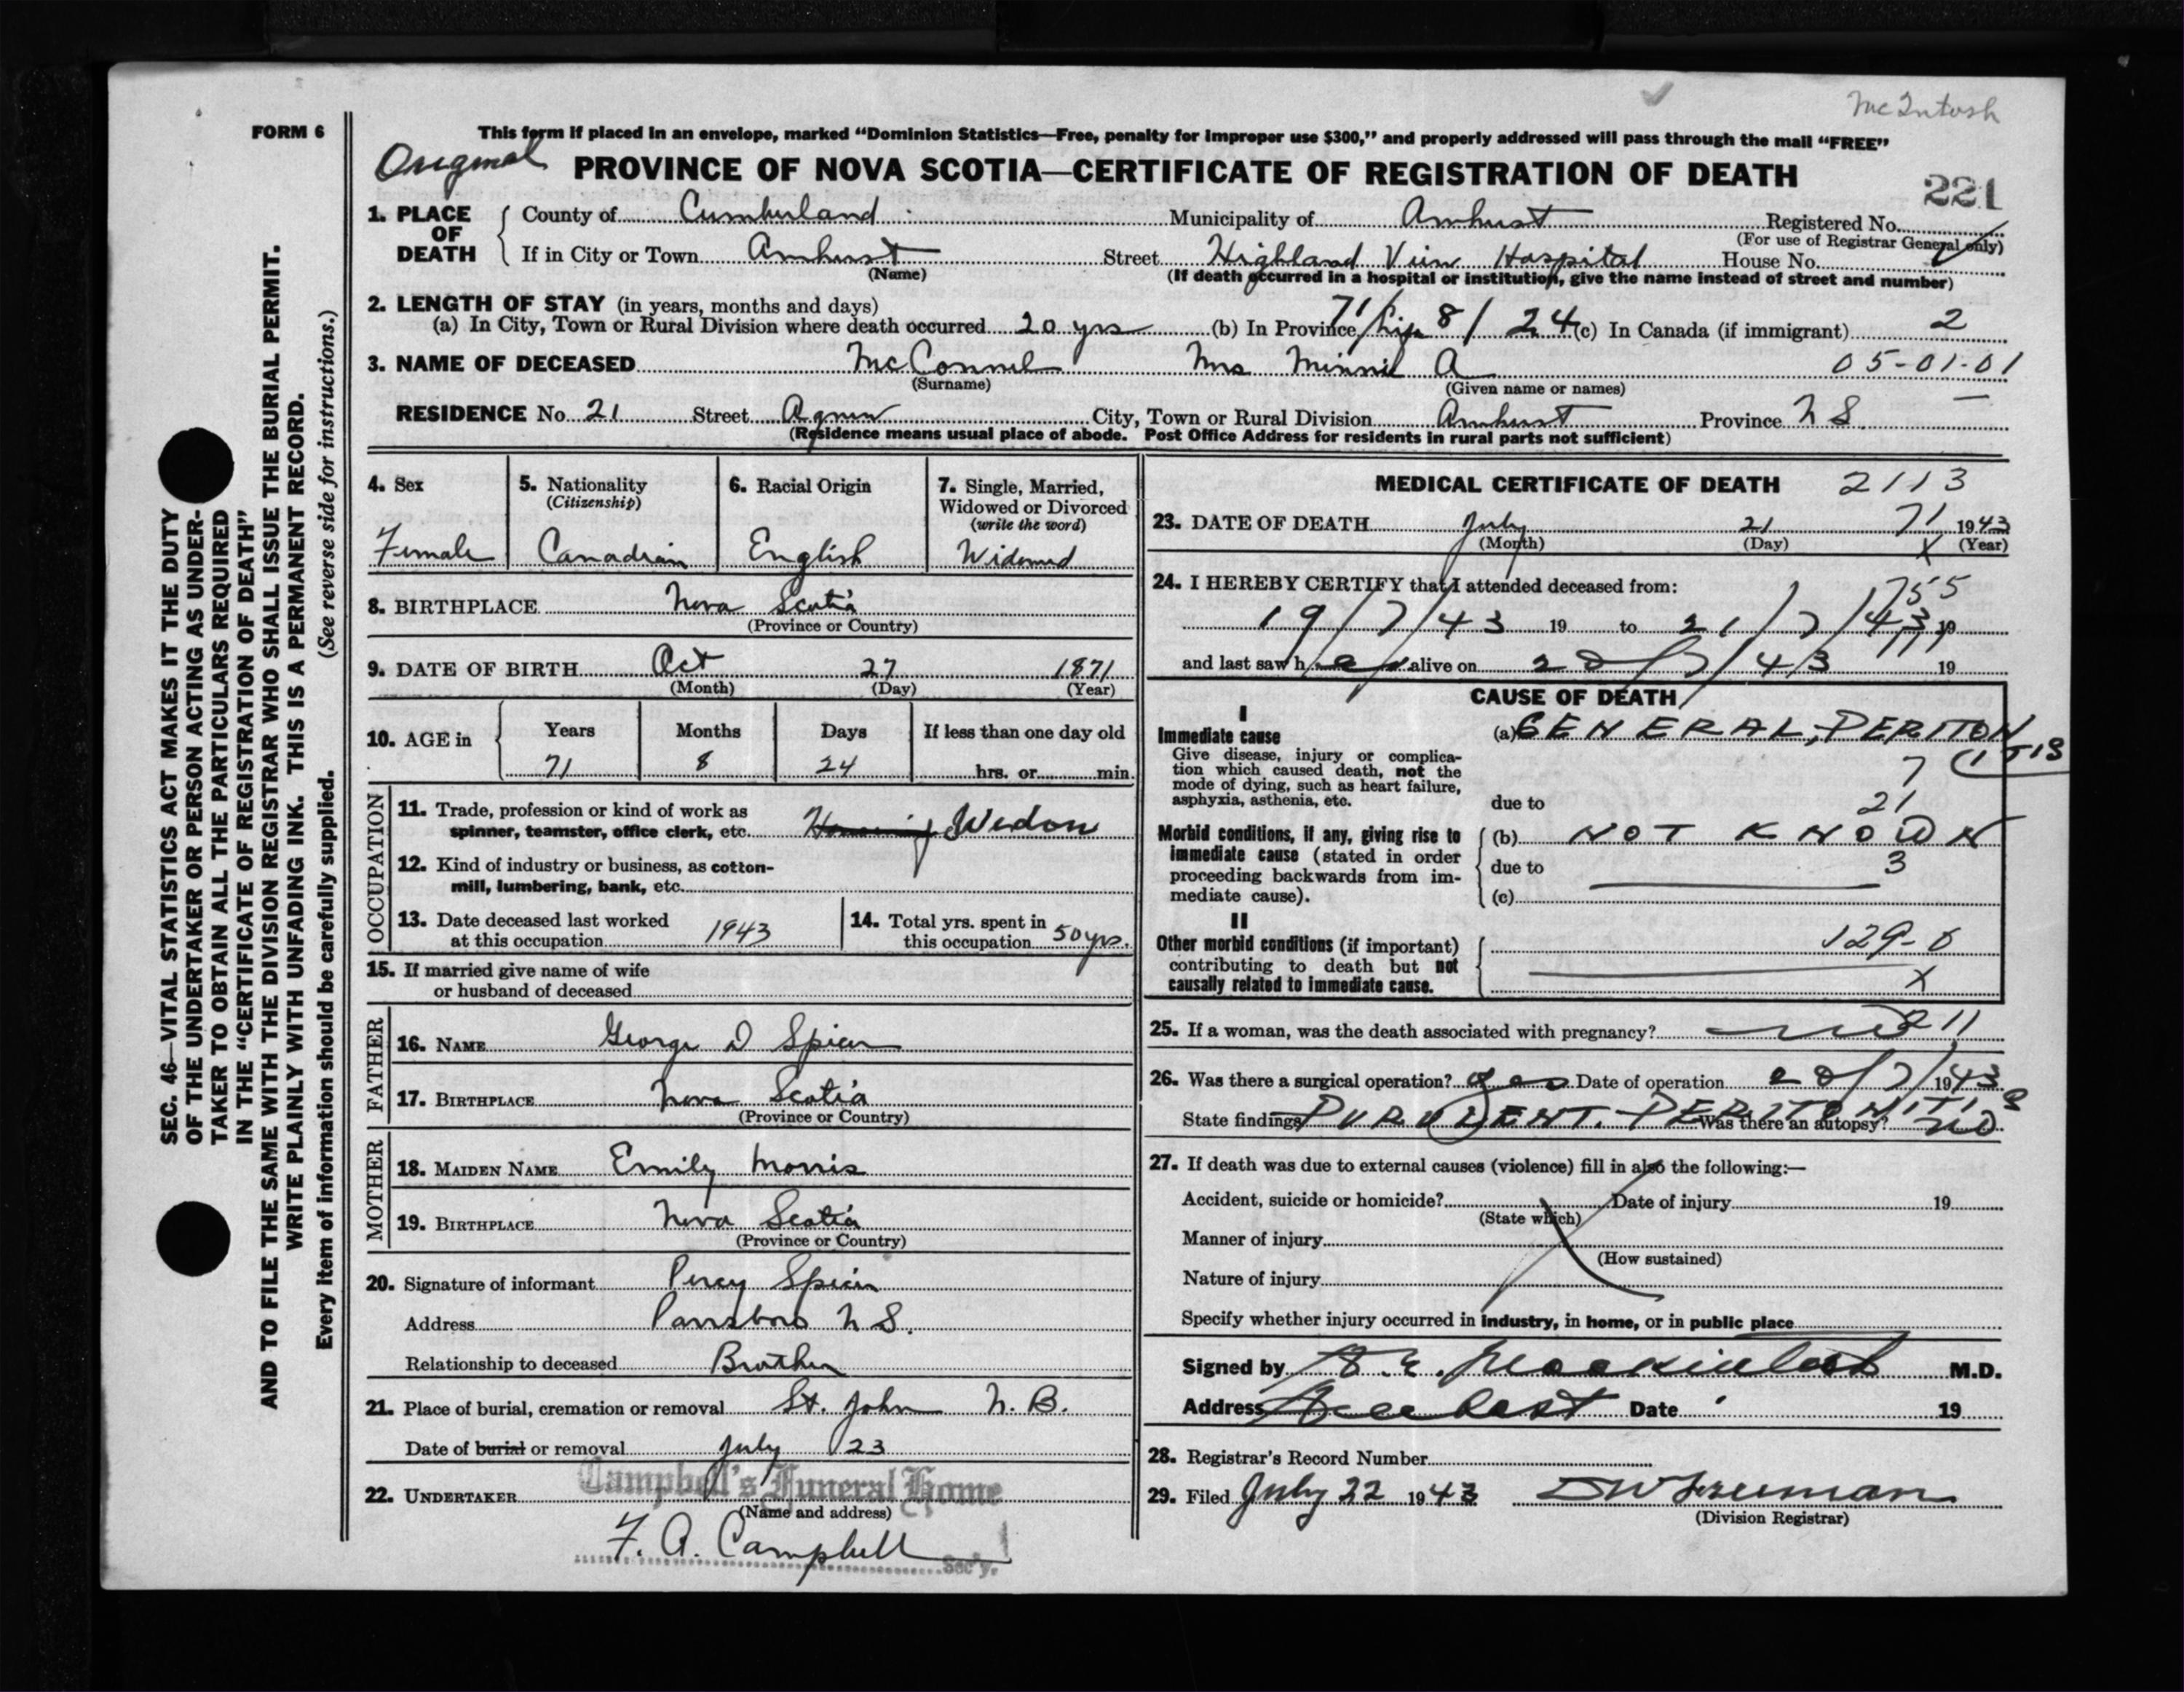 McIntosh
FORM 6
This form if placed in an envelope, marked “Dominion Statistics—Free, penalty for improper use $300,” and properly addressed will pass through the mail “FREE”
Original
PROVINCE OF NOVA SCOTIA—CERTIFICATE OF REGISTRATION OF DEATH
221
1. PLACE OF DEATH
County of Cumberland Municipality of Amherst Registered No.
(For use of Registrar General only)
If in City or Town Amherst Street Highland View Hospital House No.
(Name) (If death occurred in a hospital or institution, give the name instead of street and number)
2. LENGTH OF STAY (in years, months and days)
(a) In City, Town or Rural Division where death occurred 20 yrs (b) In Province 71/ Life 8/ 24 (c) In Canada (if immigrant) 2
3. NAME OF DECEASED McConnel Mrs Minnie A 05-01-01
(Surname) (Given name or names)
RESIDENCE No. 21 Street Agnew City, Town or Rural Division Amherst Province N S.
(Residence means usual place of abode. Post Office Address for residents in rural parts not sufficient)
4. Sex
Female
5. Nationality
(Citizenship)
Canadian
6. Racial Origin
English
7. Single, Married,
Widowed or Divorced
(write the word)
Widowed
8. BIRTHPLACE Nova Scotia
(Province or Country)
9. DATE OF BIRTH Oct 27 1871
(Month) (Day) (Year)
10. AGE in
Years Months Days If less than one day old
71 8 24 hrs. or min.
OCCUPATION
11. Trade, profession or kind of work as
spinner, teamster, office clerk, etc. Widow
12. Kind of industry or business, as cotton-
mill, lumbering, bank, etc.
13. Date deceased last worked
at this occupation 1943
14. Total yrs. spent in
this occupation 50 yrs.
15. If married give name of wife
or husband of deceased
FATHER
16. NAME George D Spicer
17. BIRTHPLACE Nova Scotia
(Province or Country)
MOTHER
18. MAIDEN NAME Emily Morris
19. BIRTHPLACE Nova Scotia
(Province or Country)
20. Signature of informant Percy Spicer
Address Parrsboro N S.
Relationship to deceased Brother
21. Place of burial, cremation or removal St. John N. B.
Date of burial or removal July 23
22. UNDERTAKER Campbell's Funeral Home
(Name and address)
F. A. Campbell
Sec'y.
MEDICAL CERTIFICATE OF DEATH 2113
23. DATE OF DEATH July 21 71 1943
(Month) (Day) X (Year)
24. I HEREBY CERTIFY that I attended deceased from:
755
19/7/43 19 to 21/7/43 19
and last saw her alive on 20/7/43 19
CAUSE OF DEATH
I
Immediate cause
Give disease, injury or complica-
tion which caused death, not the
mode of dying, such as heart failure,
asphyxia, asthenia, etc.
(a) GENERAL PERITON
ITIS
7
due to 21
Morbid conditions, if any, giving rise to
immediate cause (stated in order
proceeding backwards from im-
mediate cause).
(b) NOT KNOWN
due to 3
(c)
II
Other morbid conditions (if important)
contributing to death but not
causally related to immediate cause.
129-0
X
25. If a woman, was the death associated with pregnancy? no 211
26. Was there a surgical operation? yes Date of operation 20/7/1943
State findings PURULENT. PERITONITIS Was there an autopsy? NO
27. If death was due to external causes (violence) fill in also the following:—
Accident, suicide or homicide? Date of injury 19
(State which)
Manner of injury
(How sustained)
Nature of injury
Specify whether injury occurred in industry, in home, or in public place
Signed by M.D.
Address Amherst Date 19
28. Registrar's Record Number
29. Filed July 22 1943 D W Freeman
(Division Registrar)
SEC. 46—VITAL STATISTICS ACT MAKES IT THE DUTY
OF THE UNDERTAKER OR PERSON ACTING AS UNDER-
TAKER TO OBTAIN ALL THE PARTICULARS REQUIRED
IN THE “CERTIFICATE OF REGISTRATION OF DEATH”
AND TO FILE THE SAME WITH THE DIVISION REGISTRAR WHO SHALL ISSUE THE BURIAL PERMIT.
WRITE PLAINLY WITH UNFADING INK. THIS IS A PERMANENT RECORD.
Every item of information should be carefully supplied. (See reverse side for instructions.)